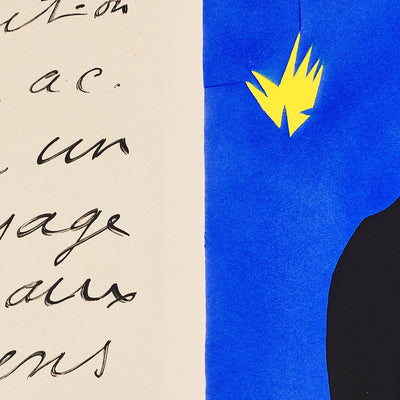 it-on
ac.
un
yage
aux
ens